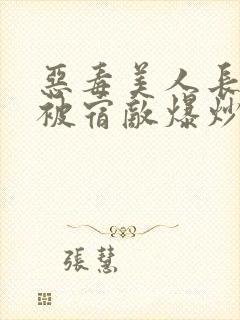 惡毒美人長
被宿敵爆炒
張慧